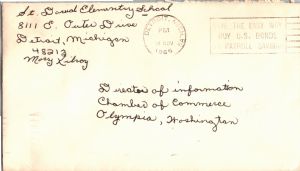 St. David Elementary School
8111 E. Outer Drive
Detroit, Michigan
48213
Mary Kilroy
PM
NOV
1966
THE EASY WAY
BUY U.S. BONDS
PAYROLL SAVINGS
Director of information
Chamber of Commerce
Olympia, Washington